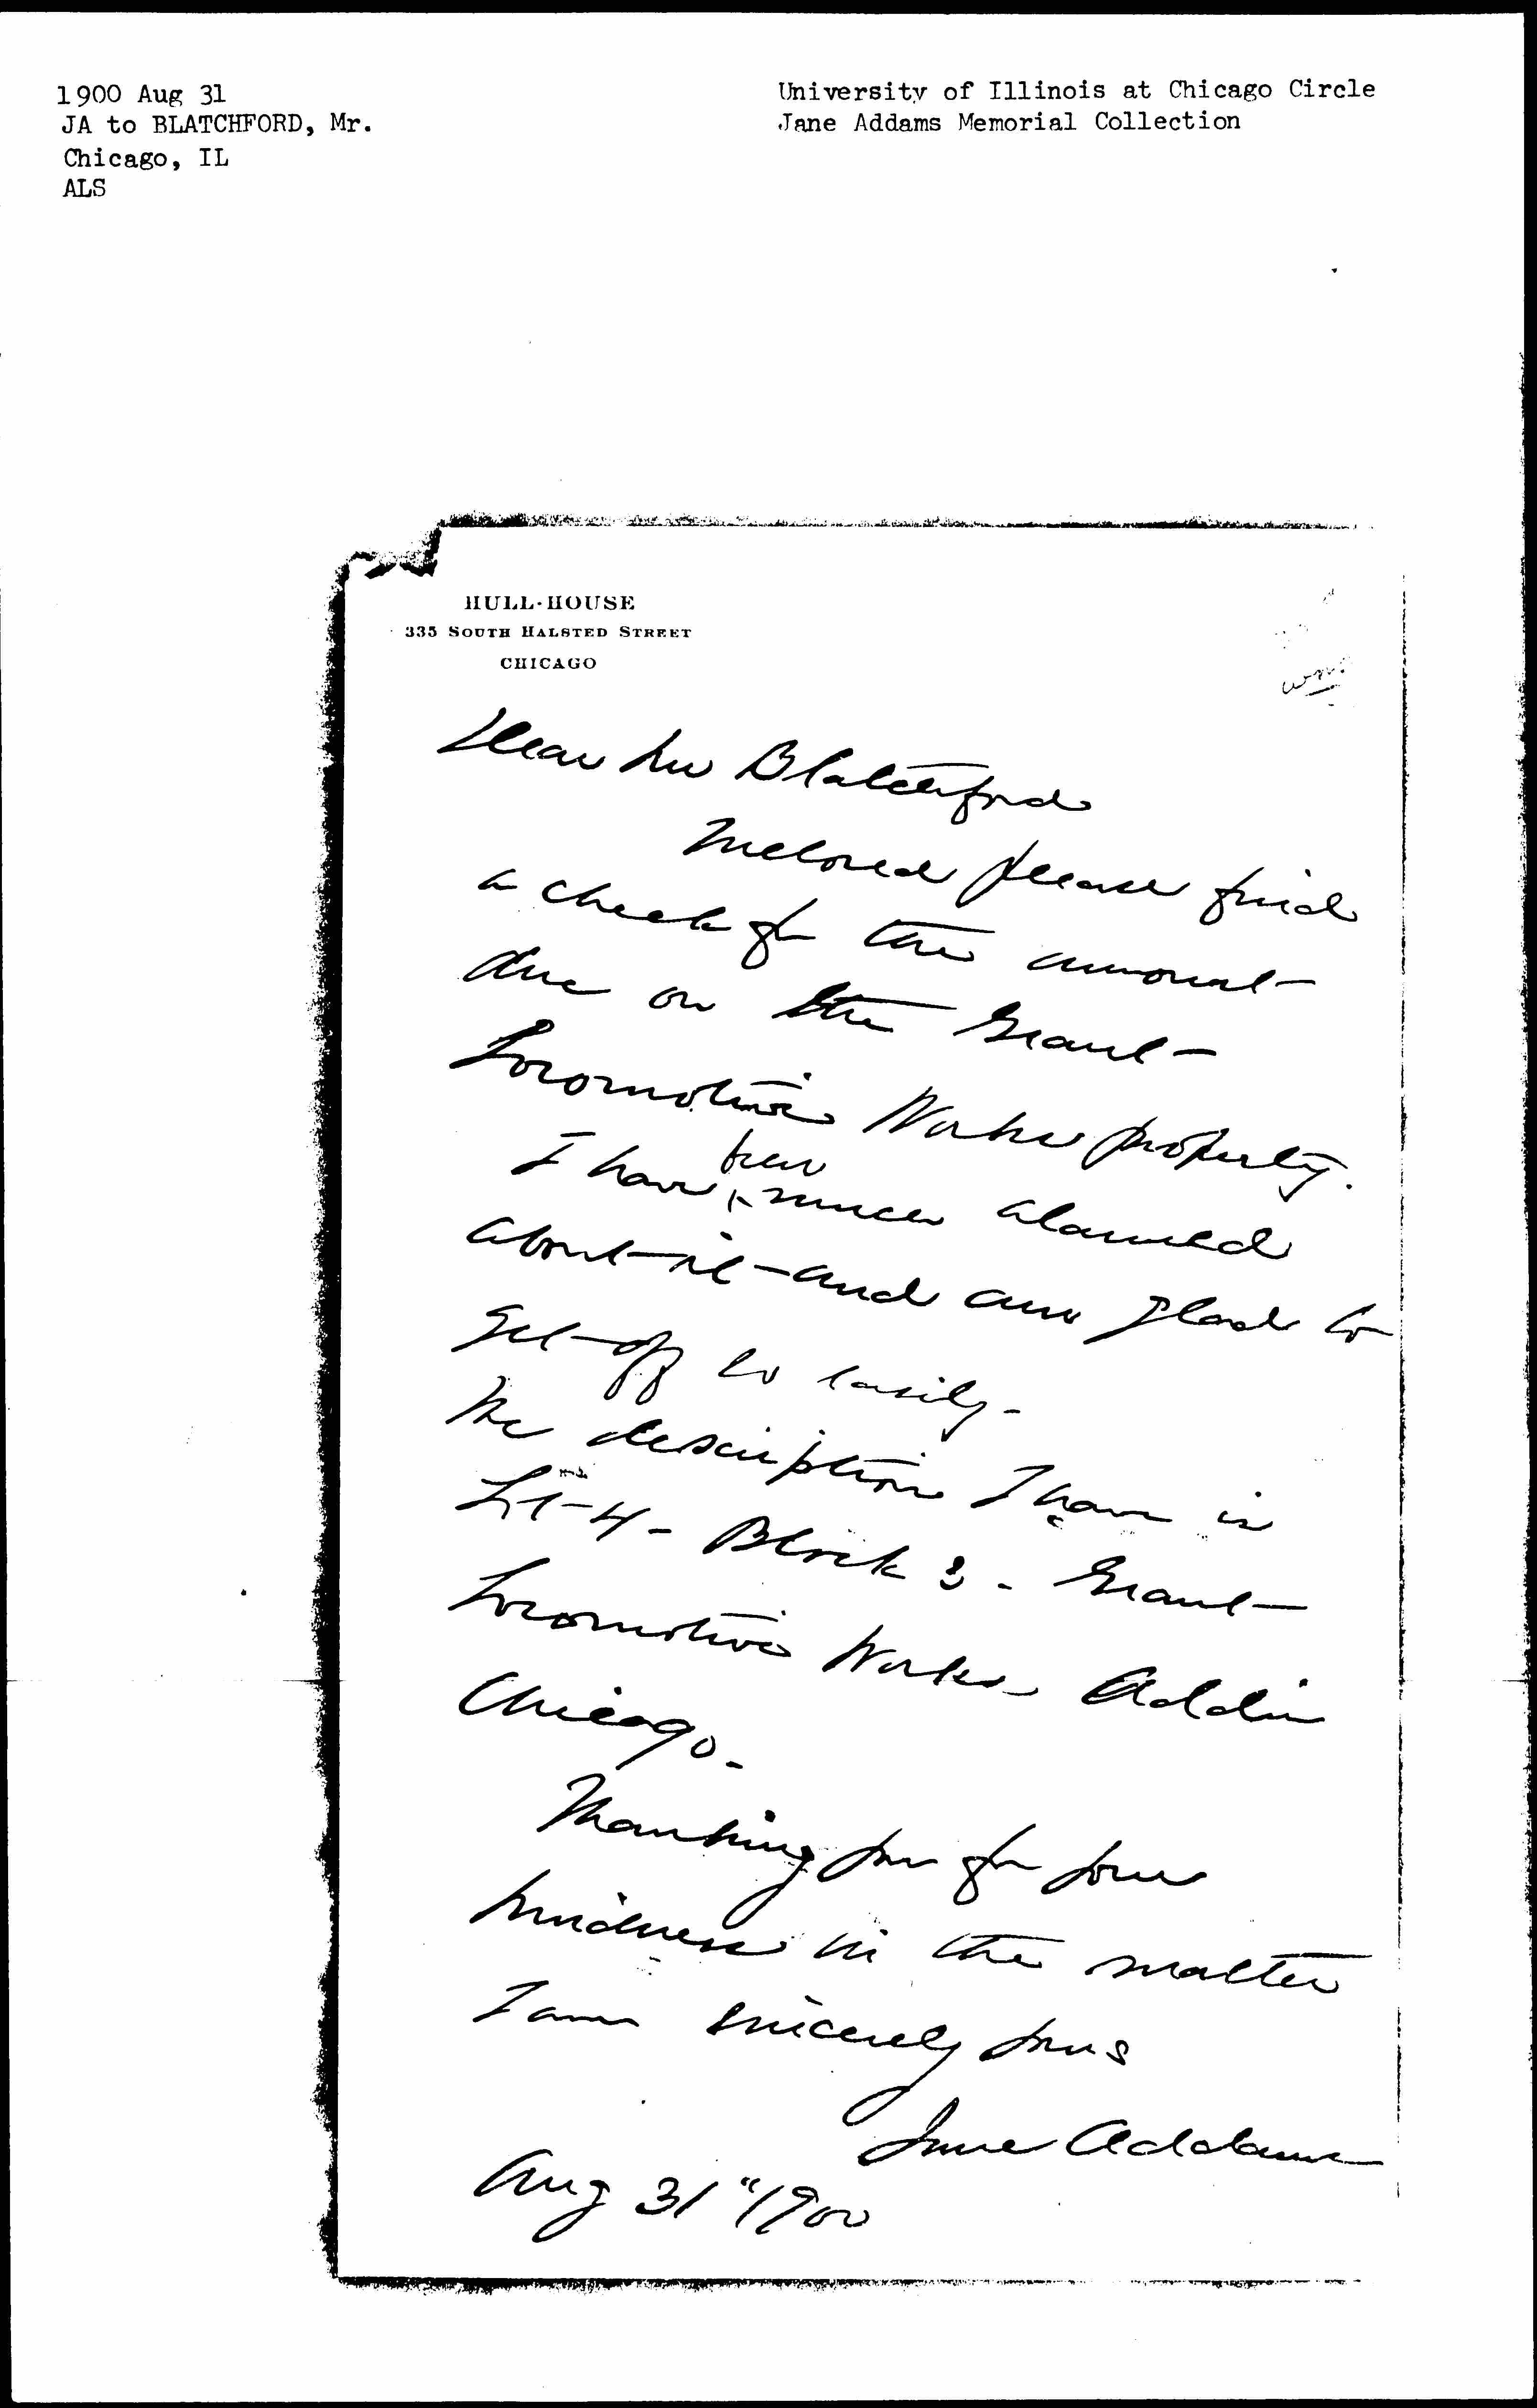 1900 Aug 31
JA to BLATCHFORD, Mr.
Chicago, IL
ALS
University of Illinois at Chicago Circle
Jane Addams Memorial Collection
HULL-HOUSE
335 SOUTH HALSTED STREET
CHICAGO
Dear Mr Blatchford
Inclosed please find
a check for the amount
due on the Grant
Locomotive Works property.
I have been much alarmed
about it and am glad to
get off so easily.
The description I have is
Lot 4 - Block 3 - Grant
Locomotive Works Addin
Chicago.
Thanking you for your
kindness in the matter
I am sincerely yours
Jane Addams
Aug 31" 1900